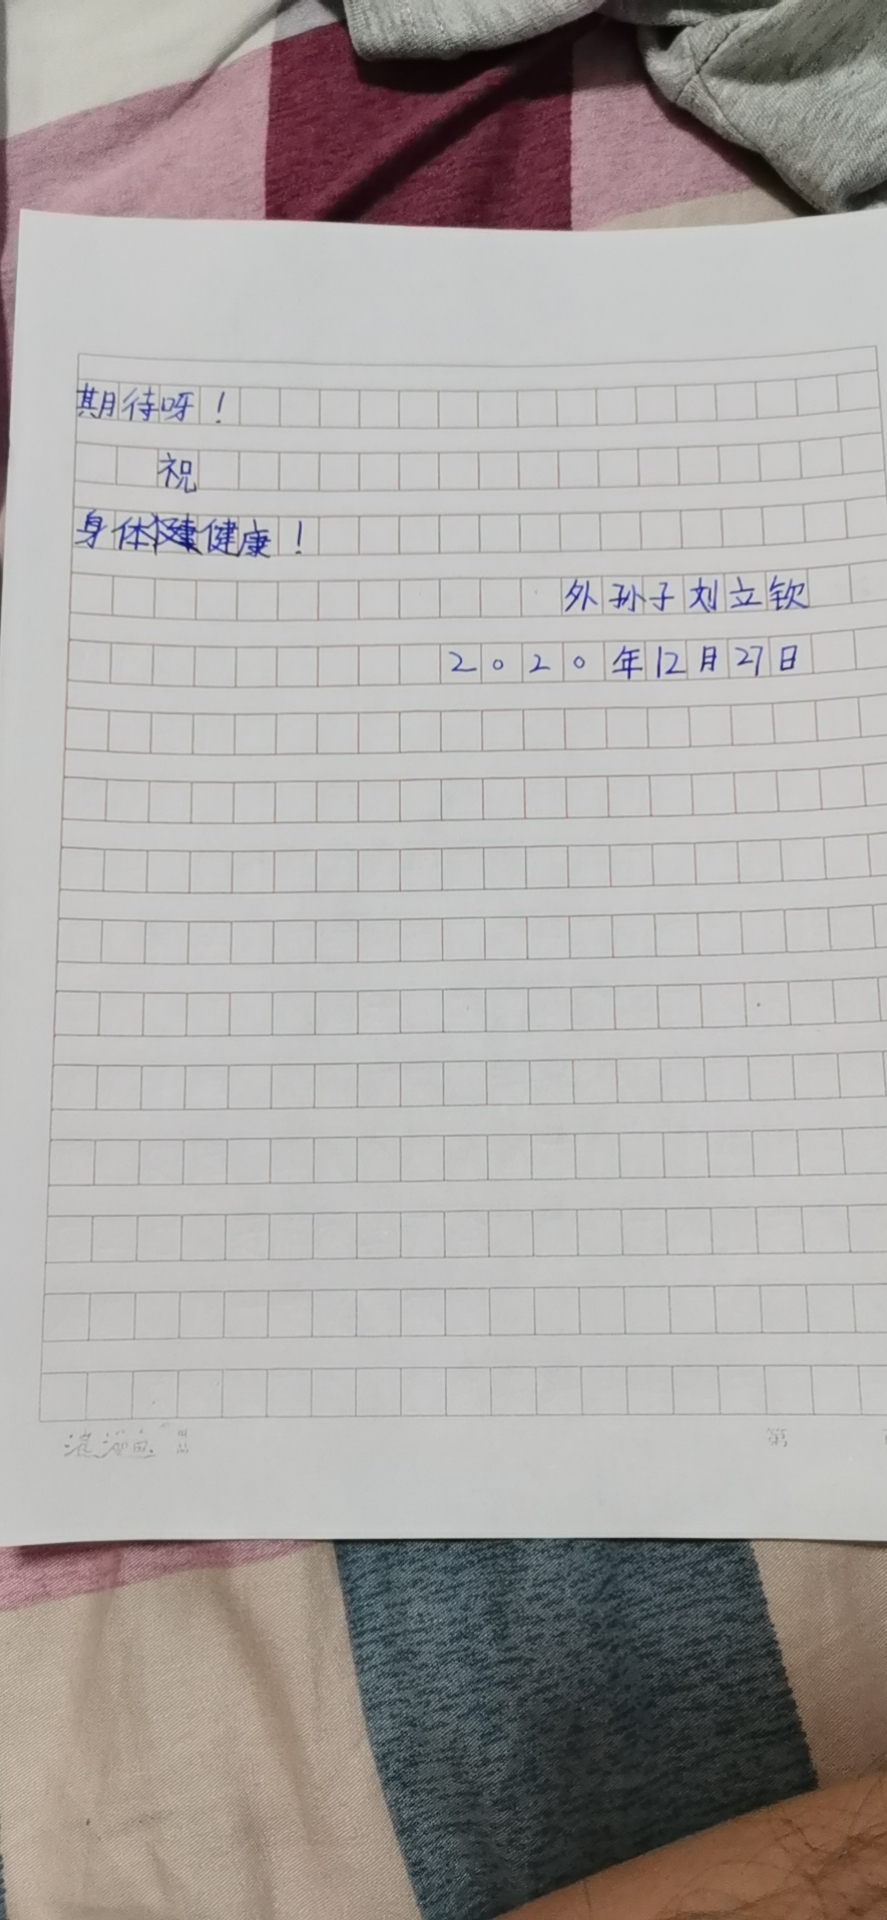 期待呀！
祝
身体健康！
外孙子刘立钦
2020年12月27日
第